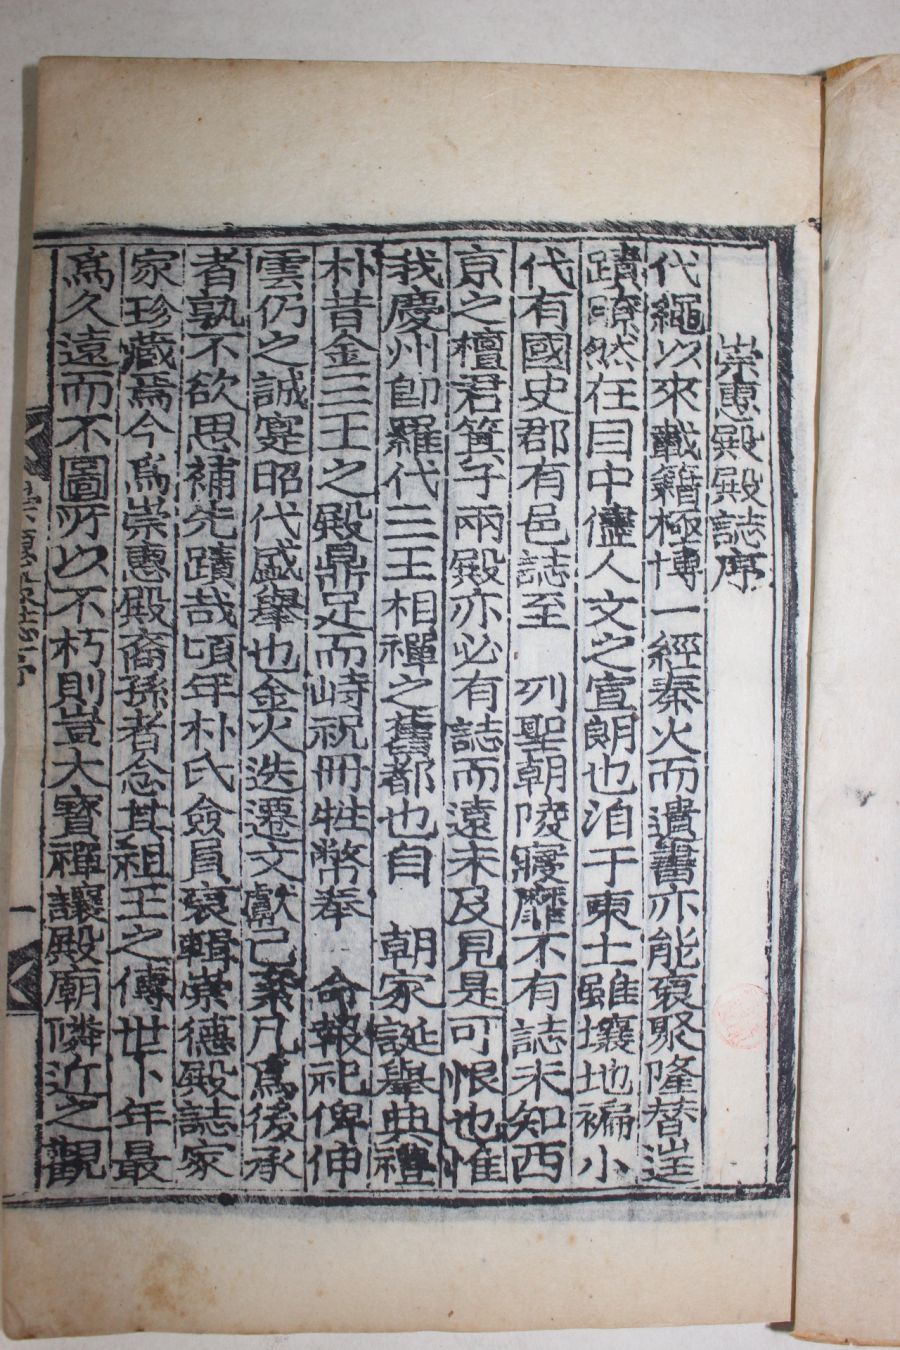 崇惠殿殿誌序
代繩以來載籍極博一經秦火而遺書亦能裒聚隆替
蹟瞭然在目中儘人文之宣朗也洎于東土雖壤地褊小
代有國史郡有邑誌至 列聖朝陵寢靡不有誌未知西
京之檀君箕子兩殿亦必有誌而遠未及見是可恨也惟
我慶州卽羅代三王相禪之舊都也自 朝家誕擧典禮
朴昔金三王之殿鼎足而峙祝冊牲幣奉 命報祀俾伸
雲仍之誠寔昭代盛擧也金火迭遷文獻已紊凡爲後承
者孰不欲思補先蹟哉頃年朴氏僉員裒輯崇德殿誌家
家珍藏焉今爲崇惠殿裔孫者念其祖王之傳世卜年最
爲久遠而不圖所以不朽則豈大寶禪讓殿廟隣近之觀
一